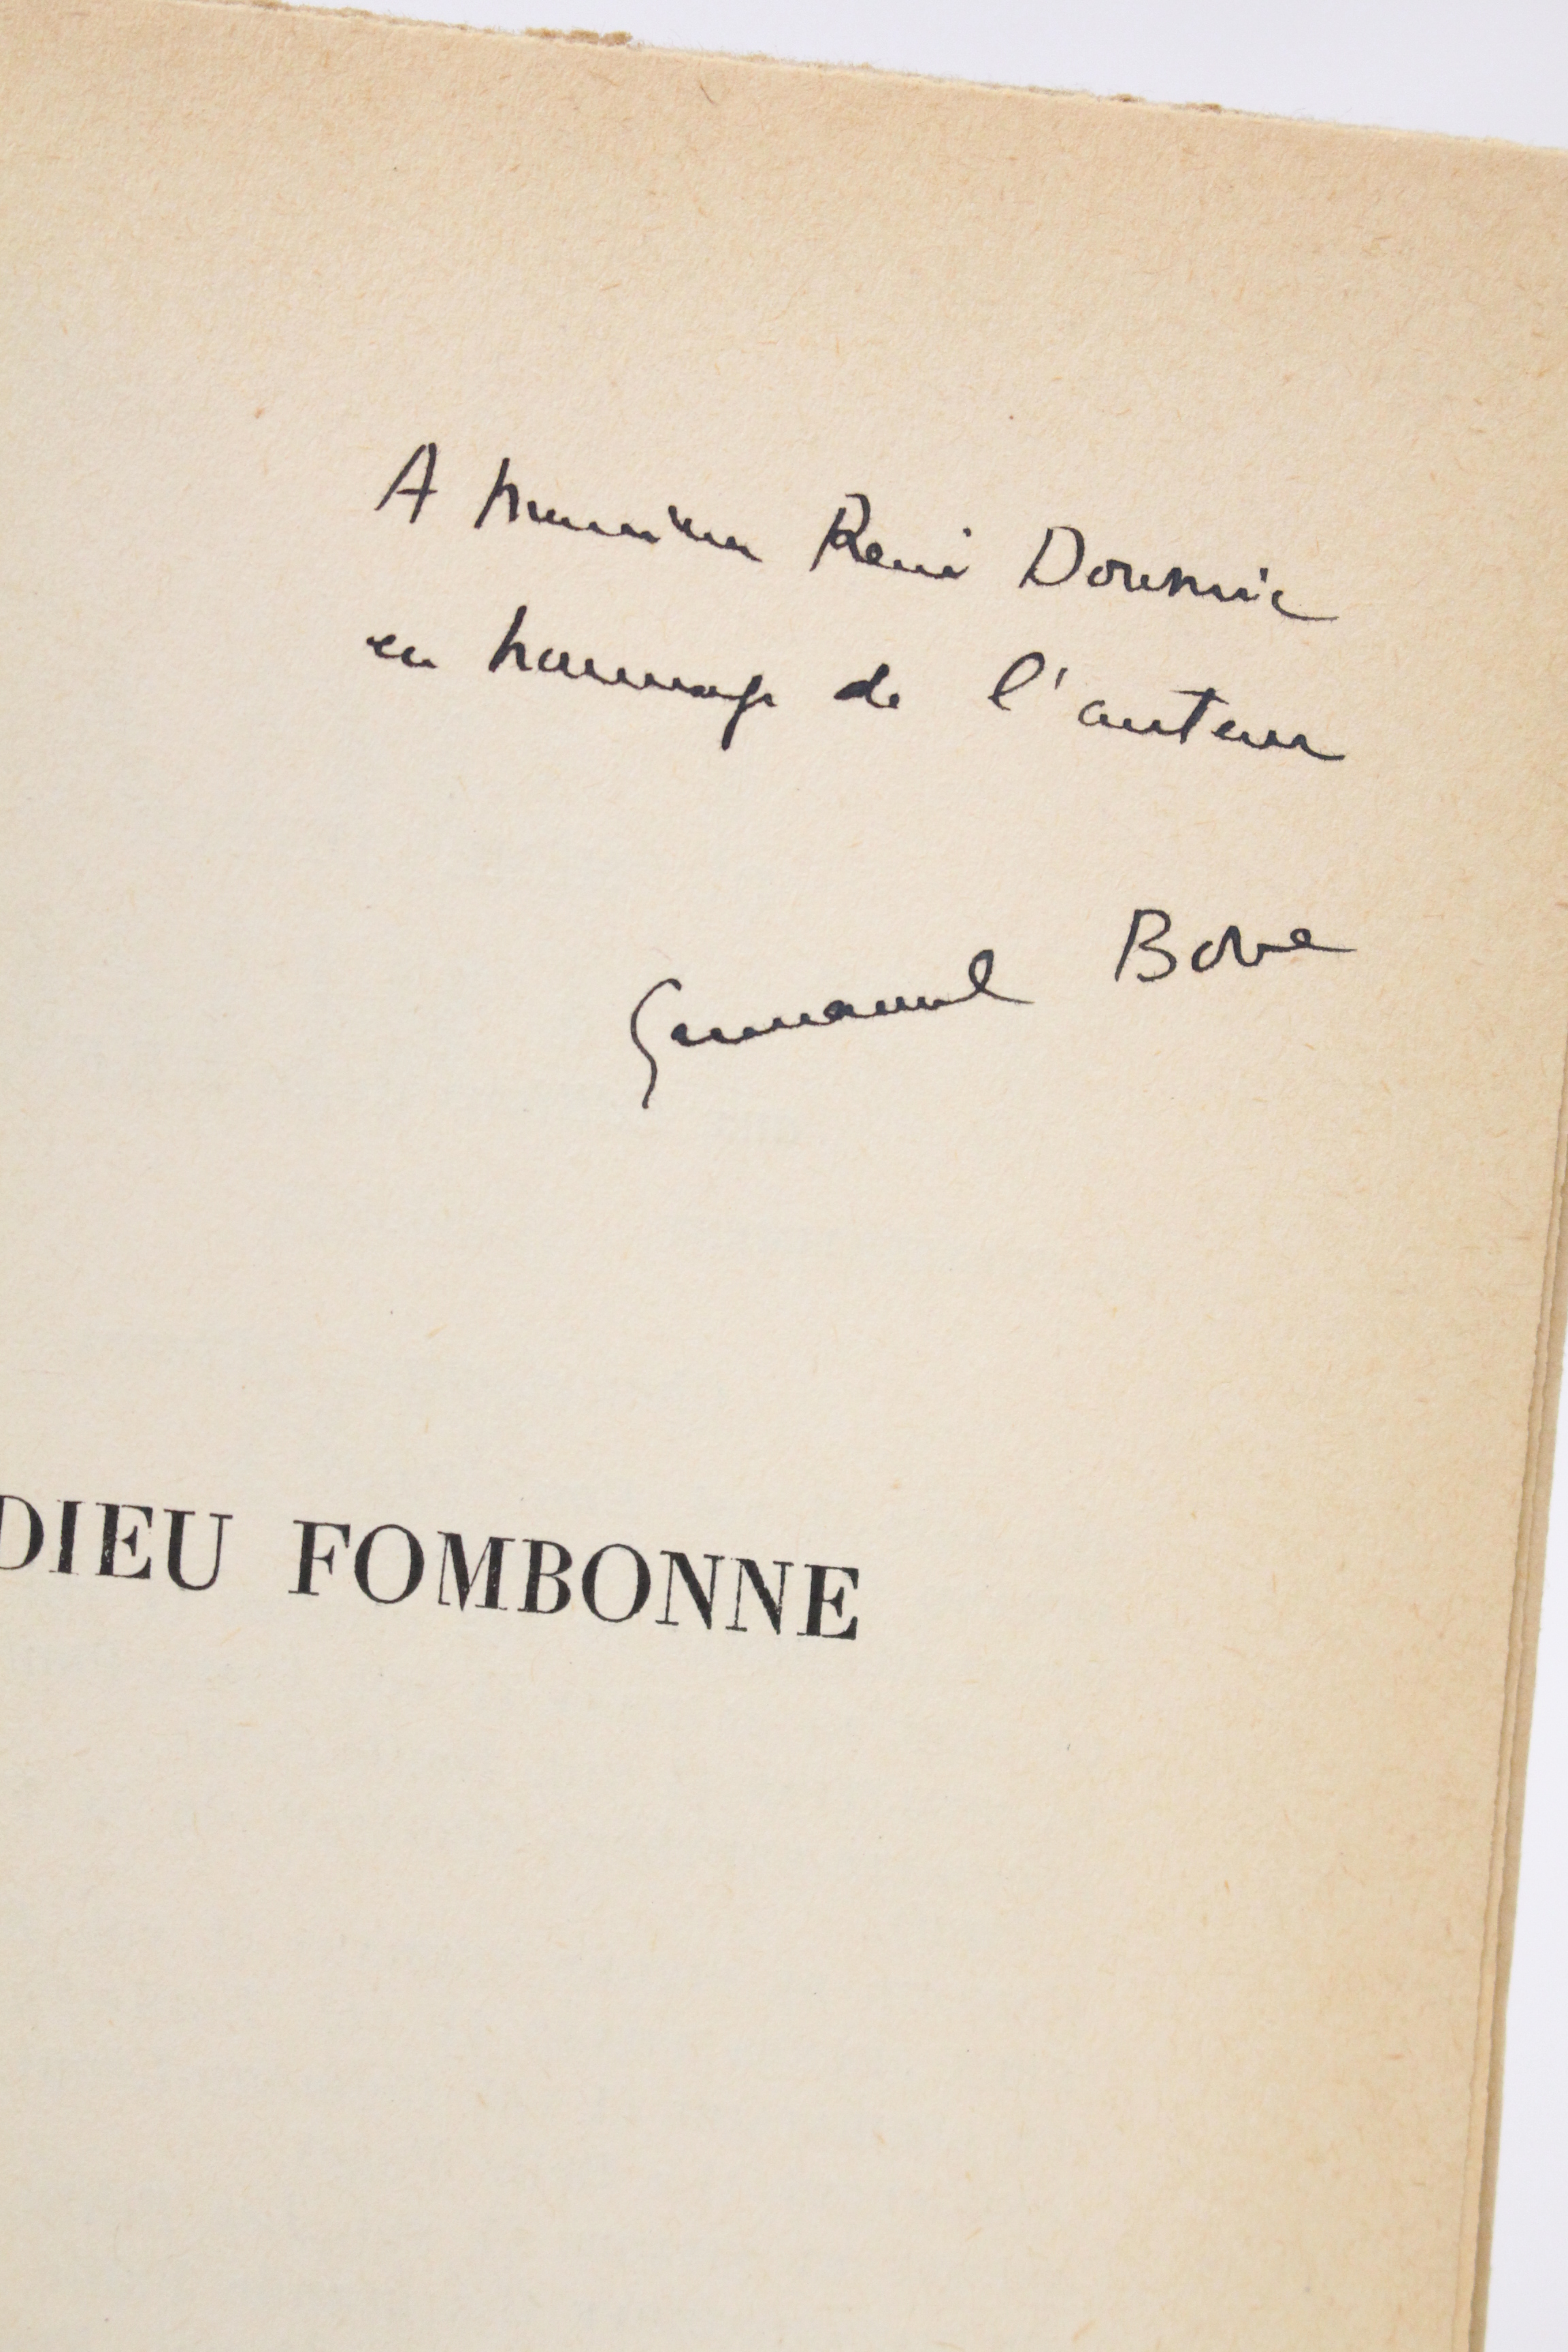 A Monsieur René Doumic
en hommage de l'auteur
Emmanuel Bove
DIEU FOMBONNE